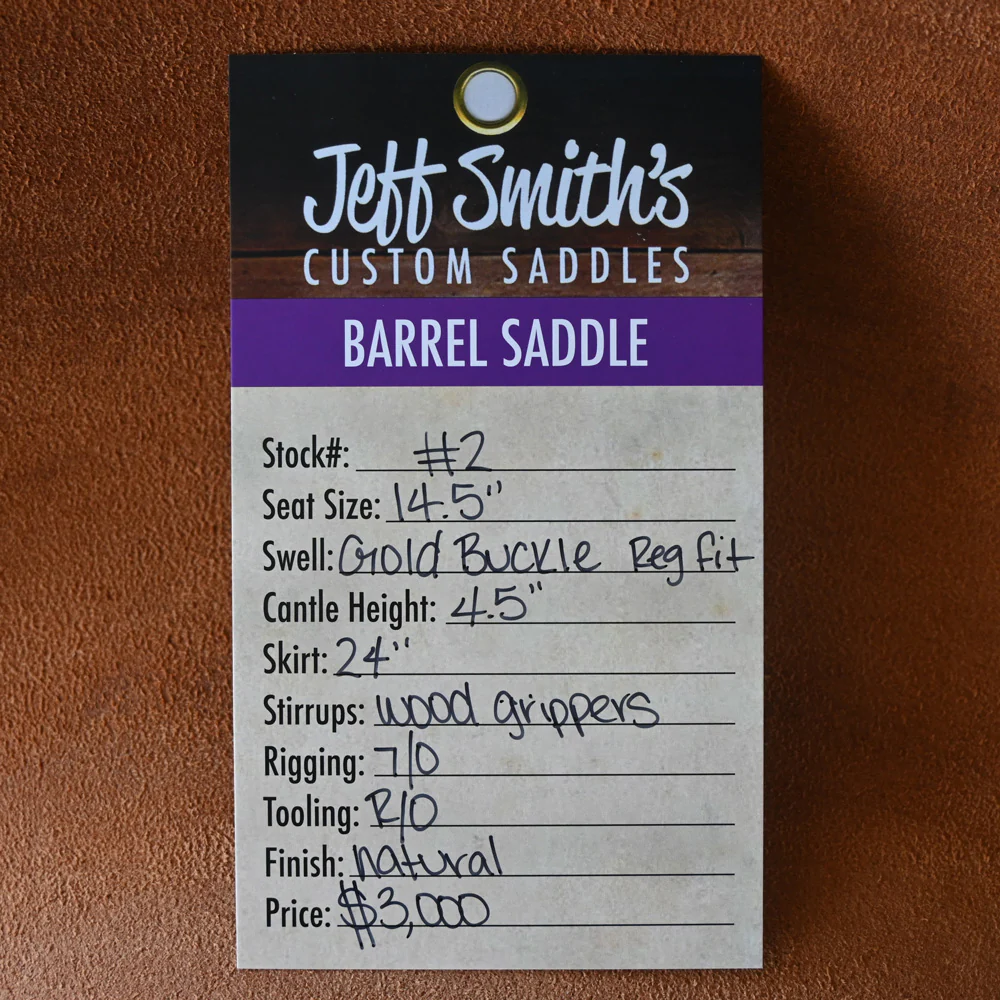 Jeff Smith's
CUSTOM SADDLES
BARREL SADDLE
Stock#: #2
Seat Size: 14.5"
Swell: Gold Buckle Reg fit
Cantle Height: 4.5"
Skirt: 24"
Stirrups: wood grippers
Rigging: 7/0
Tooling: R/O
Finish: natural
Price: $3,000